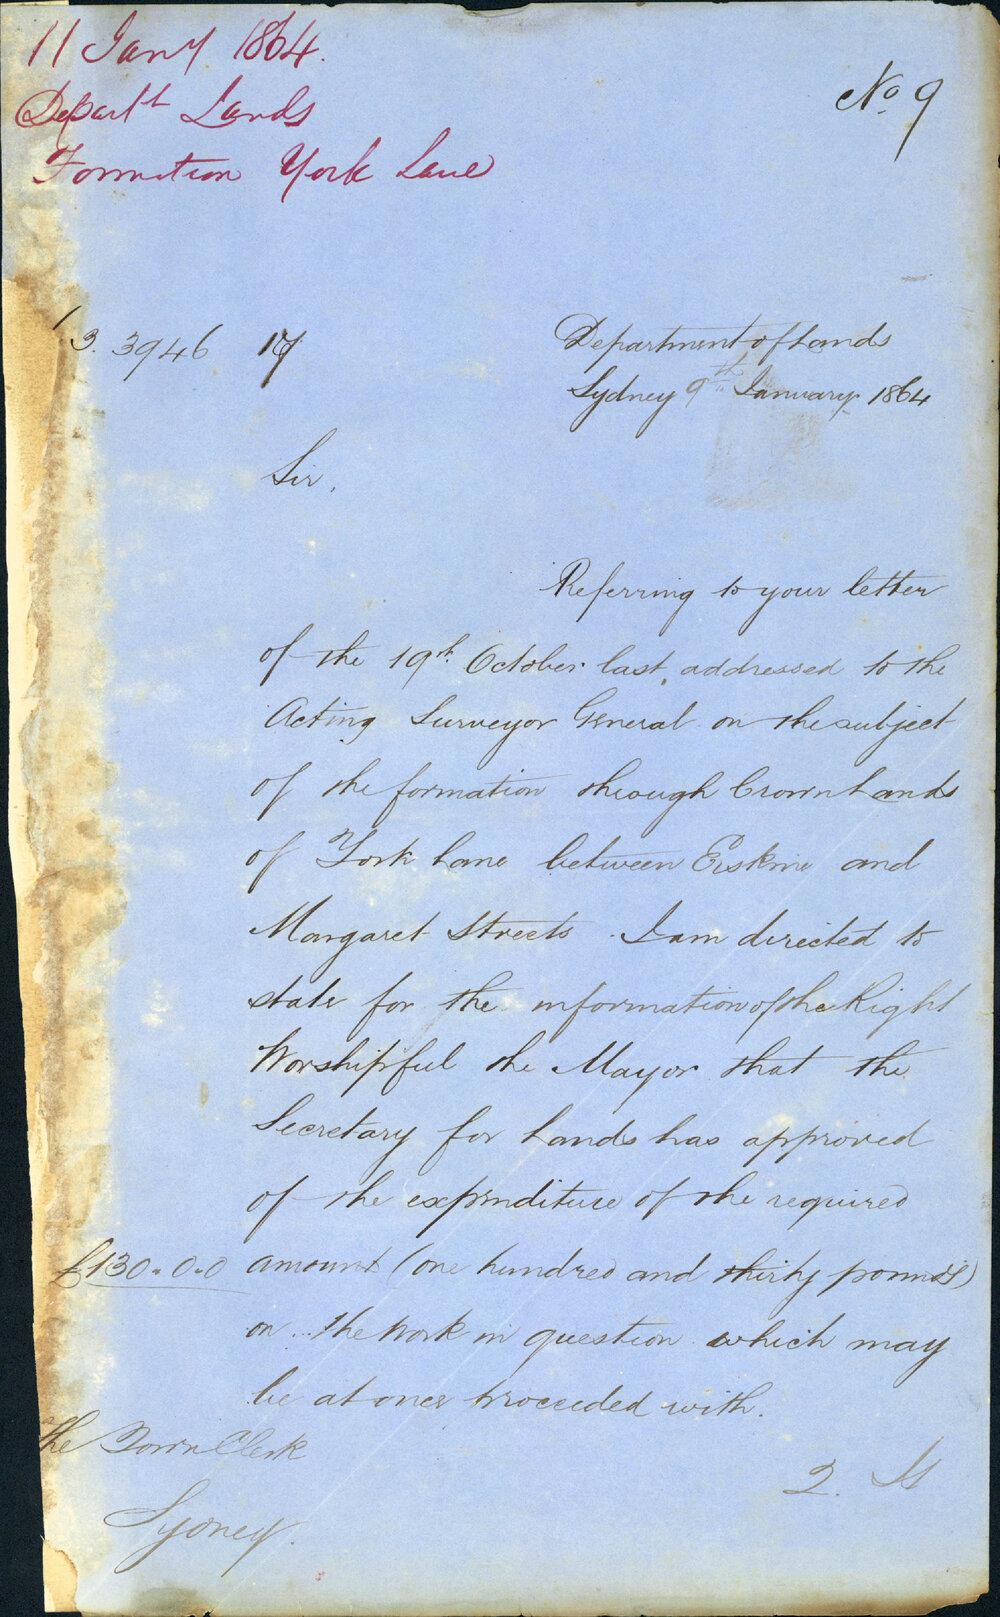 11 Jany 1864.
Departt Lands
Formation York Lane
No. 9
3. 3946
Department of Lands
Sydney 9th January 1864
Sir,
Referring to your letter
of the 19th October last, addressed to the
Acting Surveyor General on the subject
of the formation through Crown Lands
of York Lane between Erskine and
Margaret Streets. I am directed to
state for the information of the Right
Worshipful the Mayor that the
Secretary for Lands has approved
of the expenditure of the required
£130.0.0 amount (one hundred and thirty pounds)
on the work in question which may
be at once proceeded with.
The Town Clerk
Sydney.
2. It